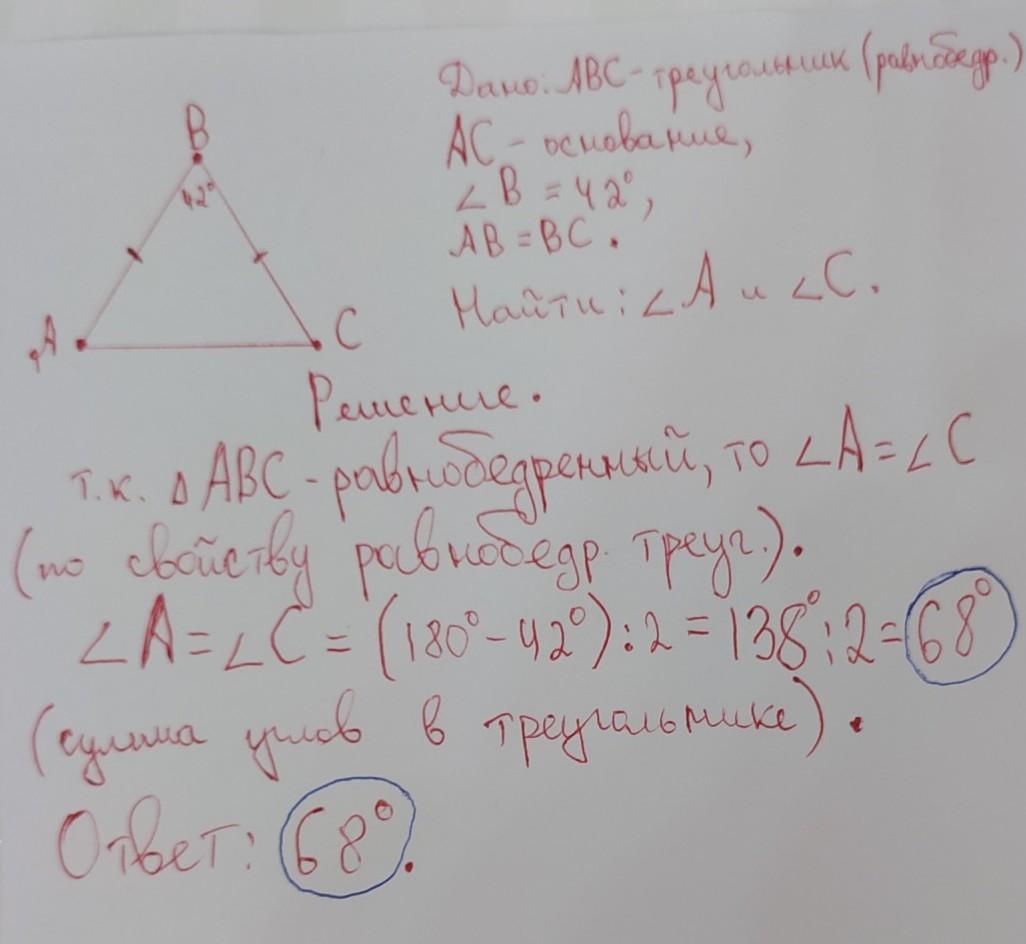 Дано: ABC - треугольник (равнобедр.)
AC - основание,
∠B = 42°,
AB = BC.
Найти: ∠A и ∠C.
B
42°
A
C
Решение.
т.к. △ABC - равнобедренный, то ∠A = ∠C
(по свойству равнобедр. треуг.).
∠A = ∠C = (180° - 42°) : 2 = 138° : 2 = 68°
(сумма углов в треугольнике).
Ответ: 68°.